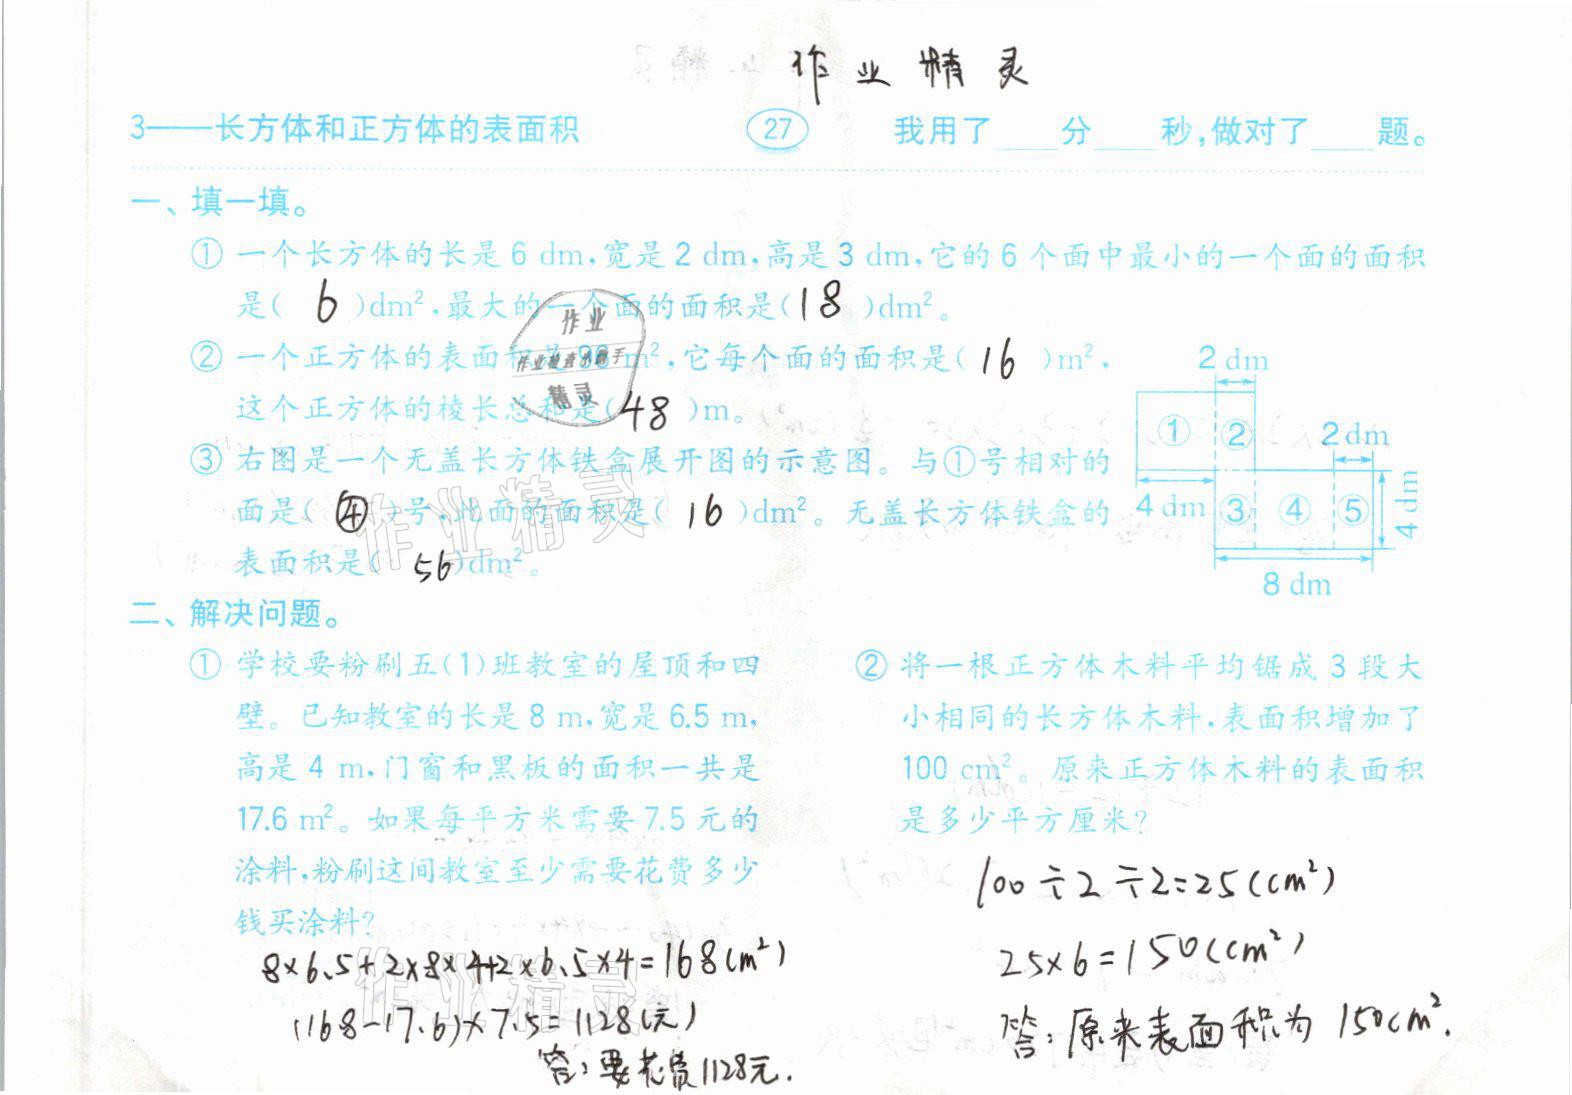 作业精灵
3——长方体和正方体的表面积 27 我用了____分____秒,做对了____题。
一、填一填。
① 一个长方体的长是6 dm,宽是2 dm,高是3 dm,它的6个面中最小的一个面的面积
是( 6 )dm²,最大的一个面的面积是( 18 )dm²。
② 一个正方体的表面积是96 m²,它每个面的面积是( 16 )m²,
这个正方体的棱长总和是( 48 )m。
③ 右图是一个无盖长方体铁盒展开图的示意图。与①号相对的
面是( ④ )号,此面的面积是( 16 )dm²。无盖长方体铁盒的
表面积是( 56 )dm²。
2 dm
① ② 2 dm
4 dm ③ ④ ⑤ 4 dm
8 dm
作业
作业检查小助手
精灵
作业精灵
二、解决问题。
① 学校要粉刷五(1)班教室的屋顶和四
壁。已知教室的长是8 m,宽是6.5 m,
高是4 m,门窗和黑板的面积一共是
17.6 m²。如果每平方米需要7.5元的
涂料,粉刷这间教室至少需要花费多少
钱买涂料?
8×6.5+2×8×4+2×6.5×4=168(m²)
(168-17.6)×7.5=1128(元)
答:要花费1128元.
作业精灵
② 将一根正方体木料平均锯成3段大
小相同的长方体木料,表面积增加了
100 cm²。原来正方体木料的表面积
是多少平方厘米?
100÷2÷2=25(cm²)
25×6=150(cm²)
答:原来表面积为150cm².